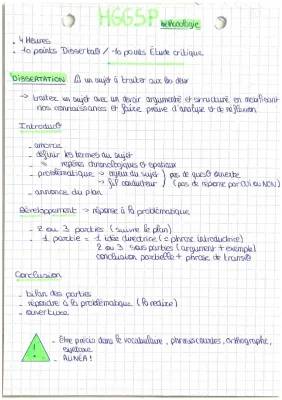 HGGSP
Méthodologie
. 4 Heures
. 10 points Dissertat° / 10 points Étude critique
DISSERTATION 1 sujet à traiter sur les deux
-> traiter un sujet avec un devoir argumenté et structuré, en mobilisant
nos connaissances et faire preuve d'analyse et de réflexion
Introduct°
- amorce
- définir les termes du sujet
- repères chronologiques et spatiaux
- problématique -> enjeu du sujet ) pas de quest° ouverte
-> fil conducteur ) (pas de réponse par OUI ou NON)
- annonce du plan
Développement -> réponse à la problématique
- 2 ou 3 parties (suivre le plan)
- 1 partie = 1 idée directrice (= phrase introductrice)
2 ou 3 sous parties (argument + exemple)
conclusion partielle + phrase de transit°
Conclusion
- bilan des parties
- répondre à la problématique (la redire)
- ouverture
! - Etre précis dans le vocabulaire, phrases courtes, orthographe,
syntaxe
- ALINÉA !